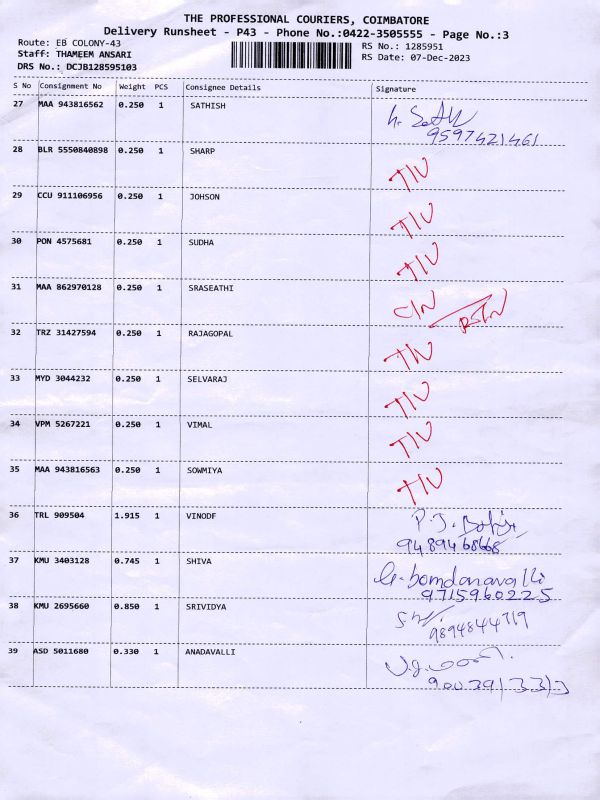 THE PROFESSIONAL COURIERS, COIMBATORE
Delivery Runsheet - P43 - Phone No.:0422-3505555 - Page No.:3
Route: EB COLONY-43
Staff: THAMEEM ANSARI
DRS No.: DCJB128595103
RS No.: 1285951
RS Date: 07-Dec-2023
S No Consignment No Weight PCS Consignee Details Signature
27 MAA 943816562 0.250 1 SATHISH
9597421461
28 BLR 5550840898 0.250 1 SHARP T/U
29 CCU 911106956 0.250 1 JOHSON T/U
30 PON 4575681 0.250 1 SUDHA T/U
31 MAA 862970128 0.250 1 SRASEATHI
32 TRZ 31427594 0.250 1 RAJAGOPAL T/U
33 MYD 3044232 0.250 1 SELVARAJ T/U
34 VPM 5267221 0.250 1 VIMAL T/U
35 MAA 943816563 0.250 1 SOWMIYA T/U
36 TRL 909504 1.915 1 VINODF P.J.
9489468668
37 KMU 3403128 0.745 1 SHIVA
9715960225
38 KMU 2695660 0.850 1 SRIVIDYA
9894844719
39 ASD 5011680 0.330 1 ANADAVALLI